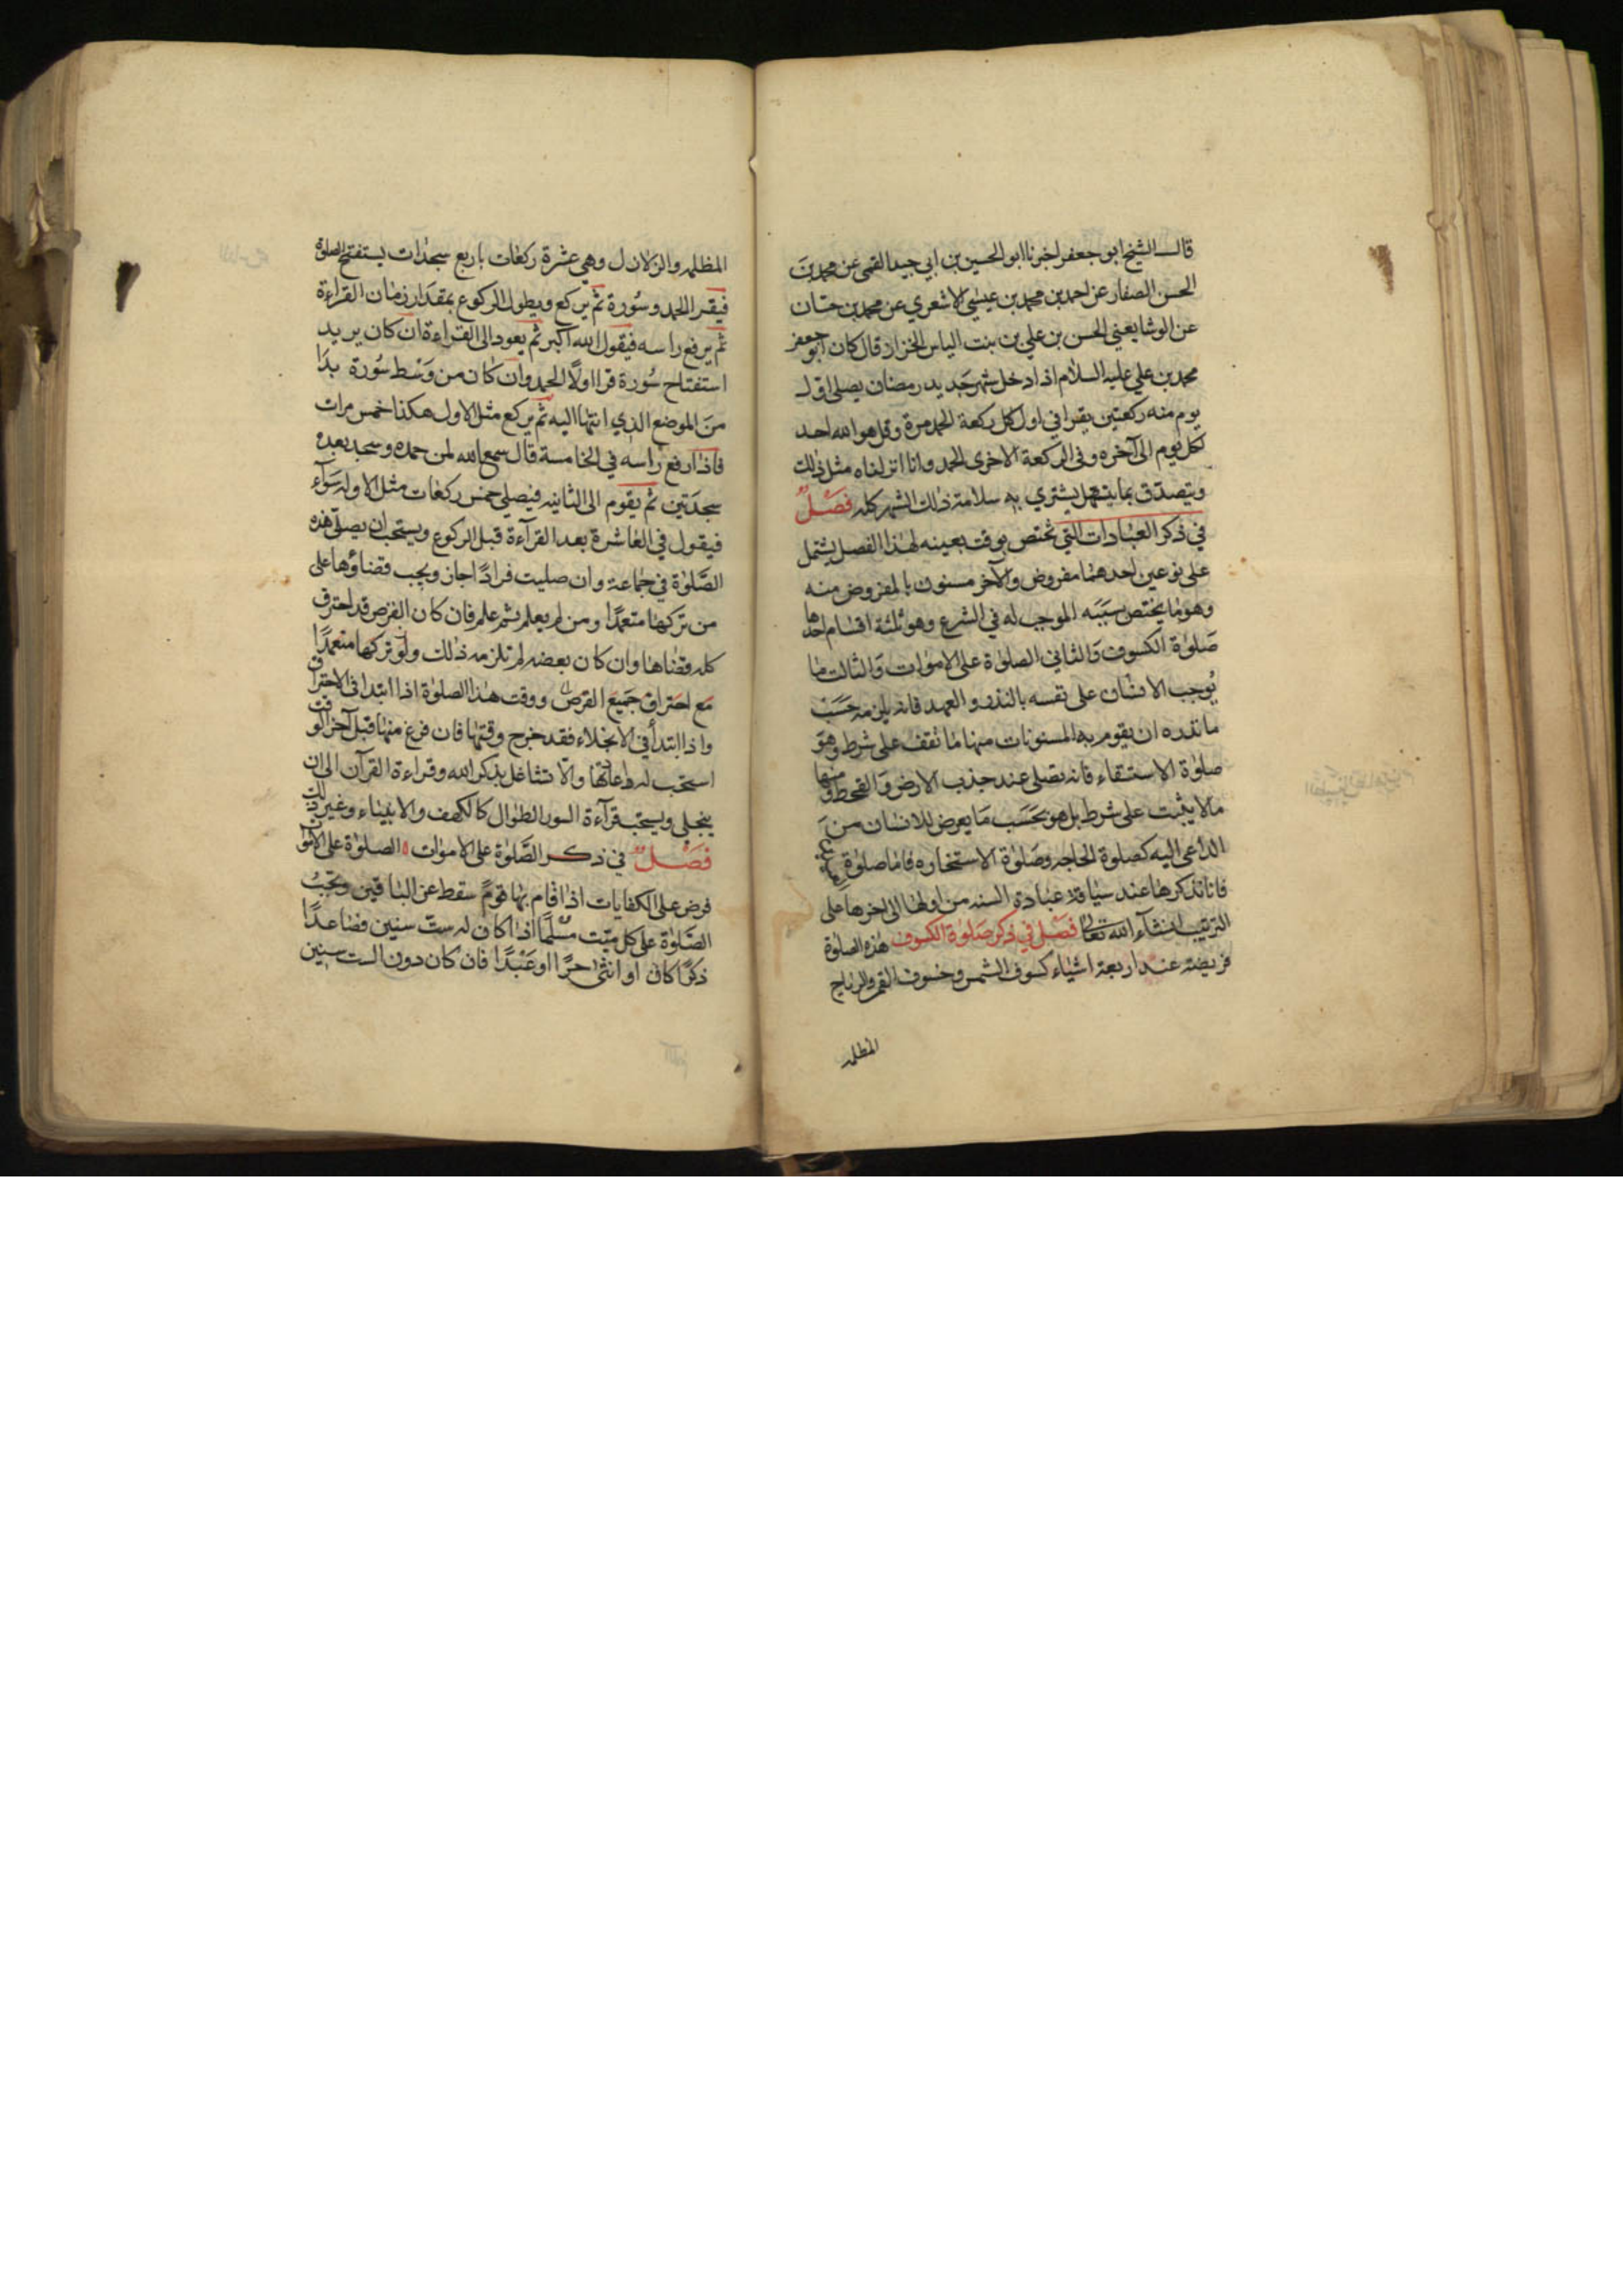 قال الشيخ ابو جعفر اخبرنا ابو الحسين بن ابي جيد القمي عن محمد بن
الحسن الصفار عن احمد بن محمد بن عيسى الاشعري عن محمد بن حسان
عن الوشا يعني الحسن بن علي بن بنت الياس الخزاز قال كان ابو جعفر
محمد بن علي عليه السلام اذا دخل شهر جديد رمضان يصلى اول
يوم منه ركعتين يقرا في اول كل ركعة الحمد مرة وقل هو الله احد
لكل يوم الى آخره وفي الركعة الاخرى الحمد وانا انزلناه مثل ذلك
ويتصدق بما يتسهل يشتري به سلامة ذلك الشهر كله فصل
في ذكر العبادات التي تختص بوقت بعينه لهذا الفصل يشتمل
على نوعين احدهما مفروض والآخر مسنون بالمفروض منه
وهو ما يختص سببه الموجب له في الشرع وهو ثلثة اقسام احدها
صلوة الكسوف والثاني الصلوة على الاموات والثالث ما
يوجب الانسان على نفسه بالنذر و العهد فانه يلزمه حسب
ما نذره ان يقوم به المسنونات منها ما تقف على شرط وهو
صلوة الاستسقاء فانه تصلى عند جذب الارض والقحط ومنها
مالا يثبت على شرط بل هو بحسب ما يعرض للانسان من
الداعي اليه كصلوة الحاجه وصلوة الاستخاره فاما صلوة
فانا نذكرها عند سياقة عبادة السنه من اولها الى اخرها على
الترتيب ان شآء الله تعالى فصل في ذكر صلوة الكسوف هذه الصلوة
فريضة عند اربعة اشياء كسوف الشمس وخسوف القمر والرياح
المظلمه
المظلمه والزلازل وهي عشرة ركعات باربع سجدات يستفتح الصلوة
فيقرا الحمد وسورة ثم يركع ويطول الركوع بمقدار زمان القراءة
ثم يرفع راسه فيقول الله اكبر ثم يعود الى القراءة ان كان يريد
استفتاح سورة قرا اولا الحمد وان كان من وسط سورة بدا
من الموضع الذي انتها اليه ثم يركع مثل الاول هكذا خمس مرات
فاذا رفع راسه في الخامسة قال سمع الله لمن حمده وسجد بعده
سجدتين ثم يقوم الى الثانيه فيصلي خمس ركعات مثل الاوله سوآء
فيقول في العاشرة بعد القرآءة قبل الركوع ويستحب ان يصلى هذه
الصلوة في جماعة وان صليت فرادا جاز ويجب قضاؤها على
من تركها متعمدا ومن لم يعلم ثم علم فان كان القرص قد احترق
كله قضاها وان كان بعضه لم تلزمه ذلك ولو تركها متعمدا
مع احتراق جميع القرص ووقت هذا الصلوة اذا ابتدا في الاحتراق
واذا ابتدأ في الانجلاء فقد خرج وقتها فان فرغ منها قبل آخر الوقت
استحب له اعادتها والا تشاغل بذكر الله وقراءة القرآن الى ان
ينجلى ويستحب قرآءة السور الطوال كالكهف والانبياء وغير ذلك
فصل في ذكر الصلوة على الاموات ه الصلوة على الاموات
فرض على الكفايات اذا قام بها قوم سقط عن الباقين وتجب
الصلوة على كل ميت مسلما اذا كان له ست سنين فصاعدا
ذكرا كان او انثى حرا او عبدا فان كان دون الست سنين